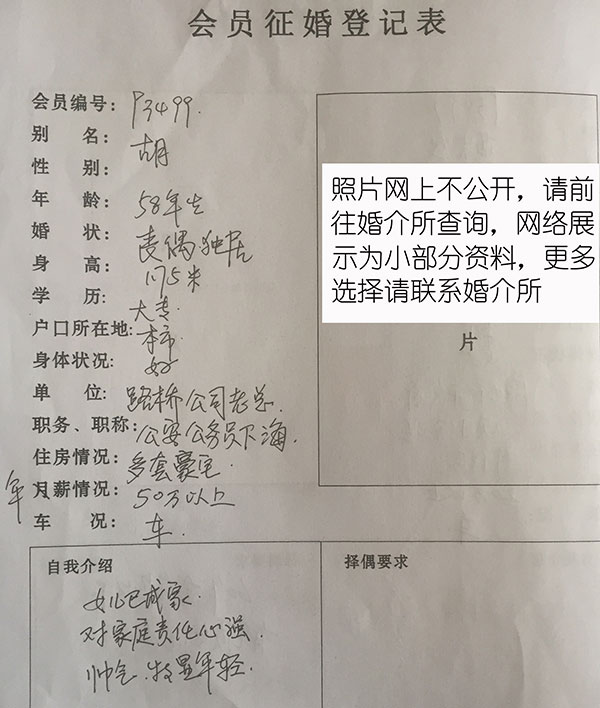 会员征婚登记表
会员编号：P3499.
别 名：胡
性 别：
年 龄：58年生
婚 状：丧偶独居
身 高：1.75米
学 历：大专
户口所在地：本市
身体状况：好
单 位：路桥公司老总.
职务、职称：公安公务员下海.
住房情况：多套豪宅.
年月薪情况：50万以上
车 况：车.
照片网上不公开，请前
往婚介所查询，网络展
示为小部分资料，更多
选择请联系婚介所
片
自我介绍
女儿已成家.
对家庭责任心强.
帅气.特显年轻.
择偶要求